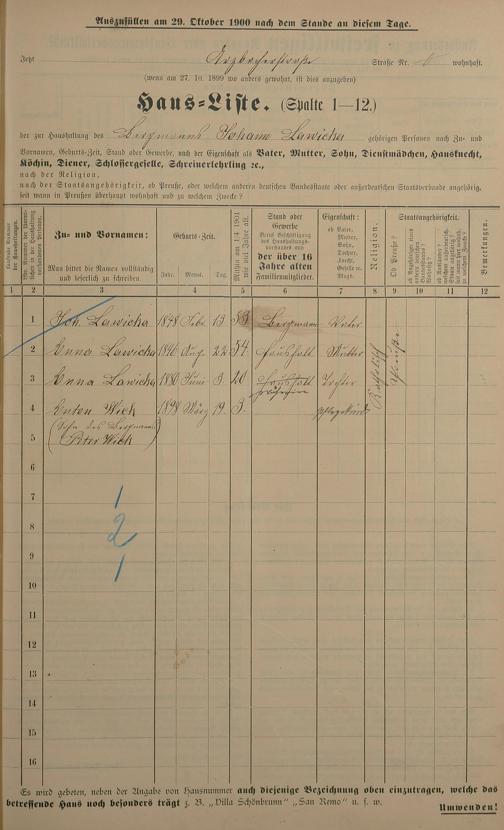 Auszufüllen am 29. Oktober 1900 nach dem Stande an diesem Tage.
Jetzt Straße Nr. wohnhaft.
(wenn am 27. 10. 1899 wo anders gewohnt, ist dies anzugeben)
Haus-Liste. (Spalte 1—12.)
der zur Haushaltung des Bergmanns Johann Lawicka gehörigen Personen nach Zu- und
Vornamen, Geburts-Zeit, Stand oder Gewerbe, nach der Eigenschaft als Vater, Mutter, Sohn, Dienstmädchen, Hausknecht,
Köchin, Diener, Schlossergeselle, Schreinerlehrling ꝛc.,
nach der Religion,
nach der Staatsangehörigkeit, ob Preuße, oder welchem anderen deutschen Bundesstaate oder außerdeutschen Staatsverbande angehörig,
seit wann in Preußen überhaupt wohnhaft und zu welchem Zwecke?
Zu- und Vornamen:
Man bittet die Namen vollständig
und leserlich zu schreiben.
Geburts-Zeit.
Jahr. Monat. Tag.
Mithin am 1/4 1901
wie viel Jahre alt.
Stand oder
Gewerbe
der über 16
Jahre alten
Familienmitglieder.
Eigenschaft:
ob Vater,
Mutter,
Sohn,
Tochter,
Knecht,
Geselle ꝛc.
Magd.
Religion.
Staatsangehörigkeit.
Ob Preuße?
Bemerkungen.
1 2 3 4 5 6 7 8 9 10 11 12
1 Joh. Lawicka 1848 Febr. 13 53 Bergmann Vater
2 Anna Lawicka 1846 Aug. 22 54 Haushalt Mutter
3 Anna Lawicka 1880 Juni 3 20 Haushalt Tochter
4 Anton Wick 1898 März 19. 3. Pflegekind
(Sohn des Bergmann
5 Peter Wick)
Katholisch
Preuße
6
7
8
9
10
11
12
13
14
15
16
1
2
1
Es wird gebeten, neben der Angabe von Hausnummer auch diejenige Bezeichnung oben einzutragen, welche das
betreffende Haus noch besonders trägt z. B. „Villa Schönbrunn" „San Remo" u. s. w.
Umwenden!